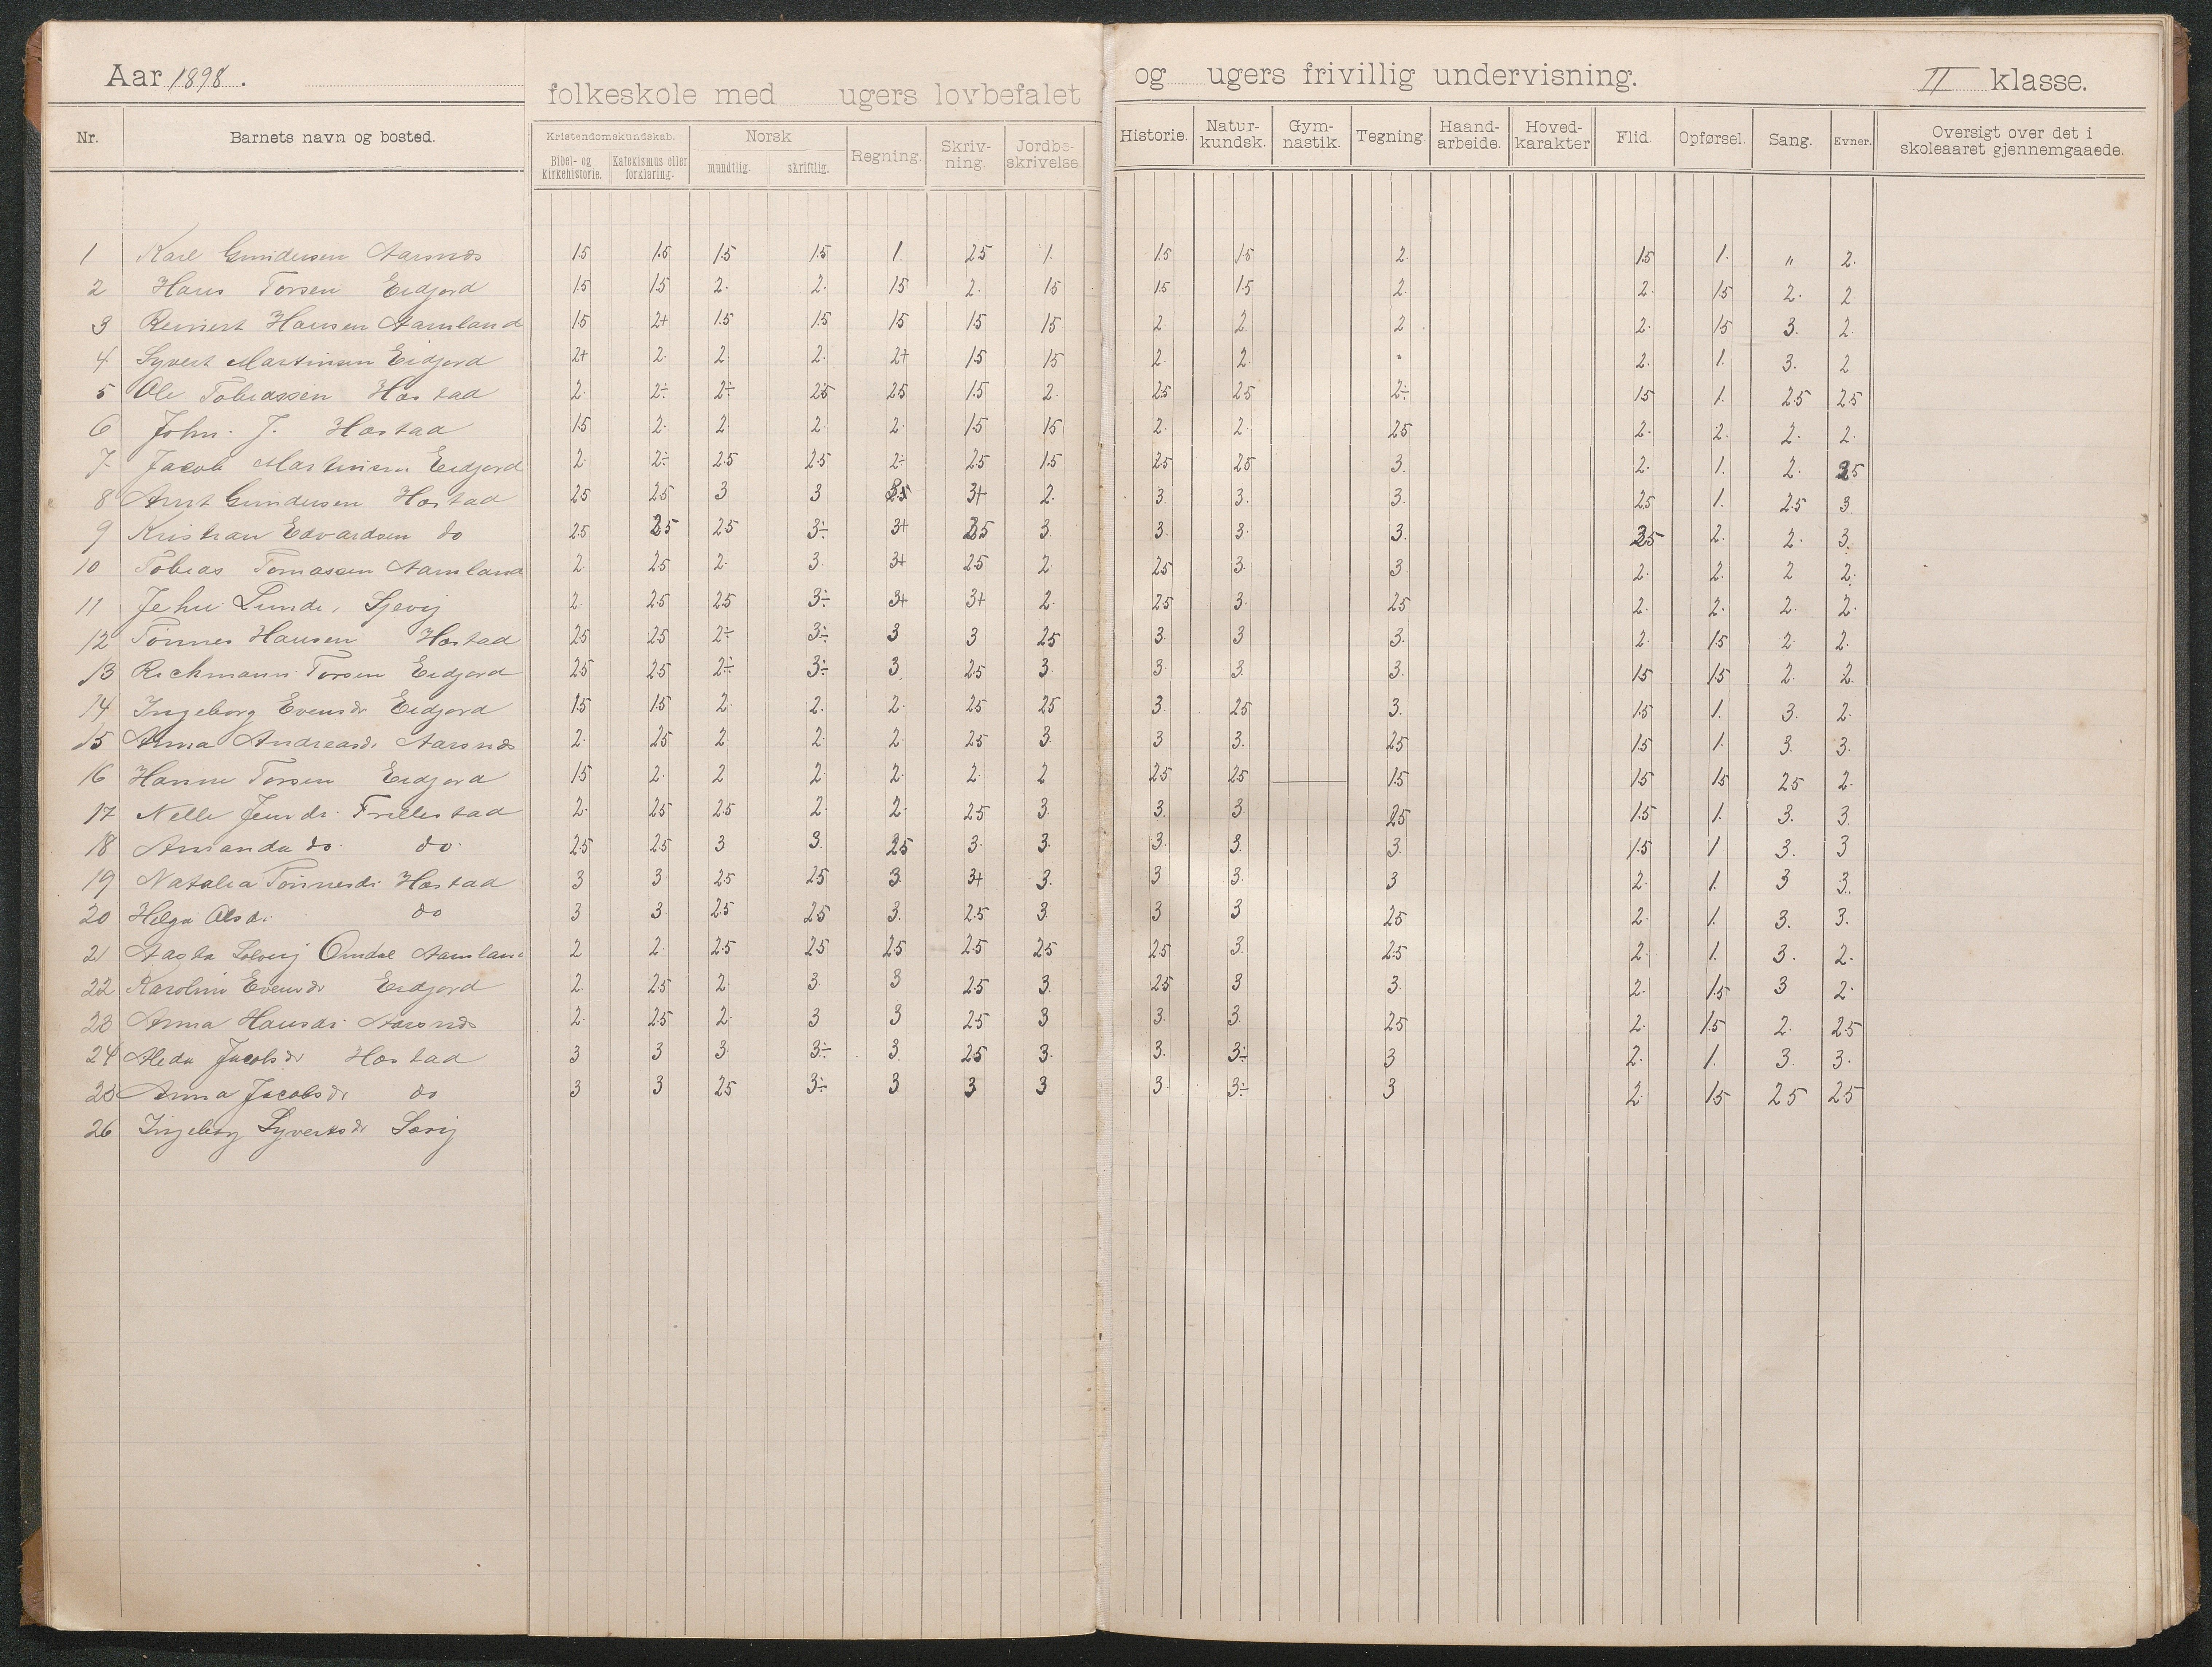 Aar 1898. folkeskole med ugers lovbefalet og ugers frivillig undervisning. II klasse.
Nr. Barnets navn og bosted. Kristendomskundskab. Norsk Regning. Skriv-ning. Jordbe-skrivelse Historie. Natur-kundsk. Gym-nastik. Tegning. Haand-arbeide. Hoved-karakter Flid. Opførsel. Sang. Evner. Oversigt over det i skoleaaret gjennemgaaede.
Bibel- og kirkehistorie. Katekismus eller forklaring. mundtlig. skriftlig.
1 Karl Gundersen Aarsnes 1.5 1.5 1.5 1.5 1. 25 1. 1.5 1.5 2. 1.5 1. " 2.
2 Hans Torsen Eidjord 1.5 1.5 2. 2. 15 2. 15 1.5 1.5 2. 2. 15 2. 2
3 Reinert Hansen Aamland 15 2+ 1.5 1.5 15 15 15 2. 2. 2 2. 15 3. 2.
4 Syvert Martinsen Eidjord 2+ 2. 2. 2. 2+ 1.5 15 2. 2. " 2. 1. 3. 2
5 Ole Tobiassen Hæstad 2. 2÷ 2÷ 25 25 1.5 2. 25 25 2÷ 15 1. 25 25
6 John. J. Hæstad 15 2. 2. 2. 2. 1.5 15 2. 2. 25 2. 2. 2. 2.
7 Jacob Martinsen Eidjord 2. 2÷ 25 25 2÷ 25 1.5 25 25 3. 2. 1. 2. 25
8 Arnt Gundersen Hæstad 25 25 3 3 3+ 2. 3. 3. 3. 25 1. 25 3.
9 Kristian Edvardsen do 25 25 25 3÷ 3+ 25 3. 3. 3. 3. 25 2. 2. 3.
10 Tobias Tomassen Aamland 2. 25 2. 3. 3+ 25 2. 25 3. 3. 2. 2. 2 2.
11 Jehu Lunde, Sjevig 2. 25 25 3÷ 3+ 3+ 2. 25 3. 25 2. 2. 2. 2.
12 Tønnes Hansen Hæstad 25 25 2÷ 3÷ 3 3 25 3. 3 3. 2. 15 2. 2.
13 Richmann Torsen Eidjord 25 25 2÷ 3÷ 3. 25 3. 3. 3. 3. 15 15 2. 2.
14 Ingeborg Evensdr Eidjord 1.5 1.5 2. 2. 2. 25 25 3. 25 3. 1.5 1. 3. 2.
15 Anna Andreasdr Aarsnes 2. 25 2. 2. 2. 25 3. 3 3. 25 1.5 1. 3. 3.
16 Hanne Torsen Eidjord 15 2. 2 2. 2. 2. 2 25 25 15 15 15 25 2.
17 Nelle Jensdr. Frillestad 2. 25 25 2. 2. 25 3. 3. 3. 25 1.5 1. 3. 3.
18 Amanda do. do. 25 25 3 3. 25 3. 3. 3. 3. 3. 1.5 1 3. 3
19 Natalia Tønnesdr Hæstad 3 3. 25 25 3. 3+ 3. 3 3. 3 2. 1. 3 3.
20 Helga Olsdr. do 3 3. 25 25 3. 25 3. 3 3 25 2. 1. 3. 3.
21 Aasta Solveig Omdal Aamland 2 2. 25 25 25 25 25 25 3. 25 2. 1. 3. 2.
22 Karoline Evensdr Eidjord 2. 25 2. 3. 3 25 3. 25 3 3. 2. 1.5 3 2.
23 Anna Hansdr Aarsnes 2. 25 2. 3 3 25 3 3. 3. 25 2. 15 2. 25
24 Aleda Jacobsdr Hæstad 3 3 3. 3÷ 3. 25 3. 3. 3÷ 3 2. 1. 3. 3.
25 Anna Jacobsdr do 3 3 25 3÷ 3 3 3 3. 3÷ 3 2. 15 25 25
26 Ingeborg Syvertsdr